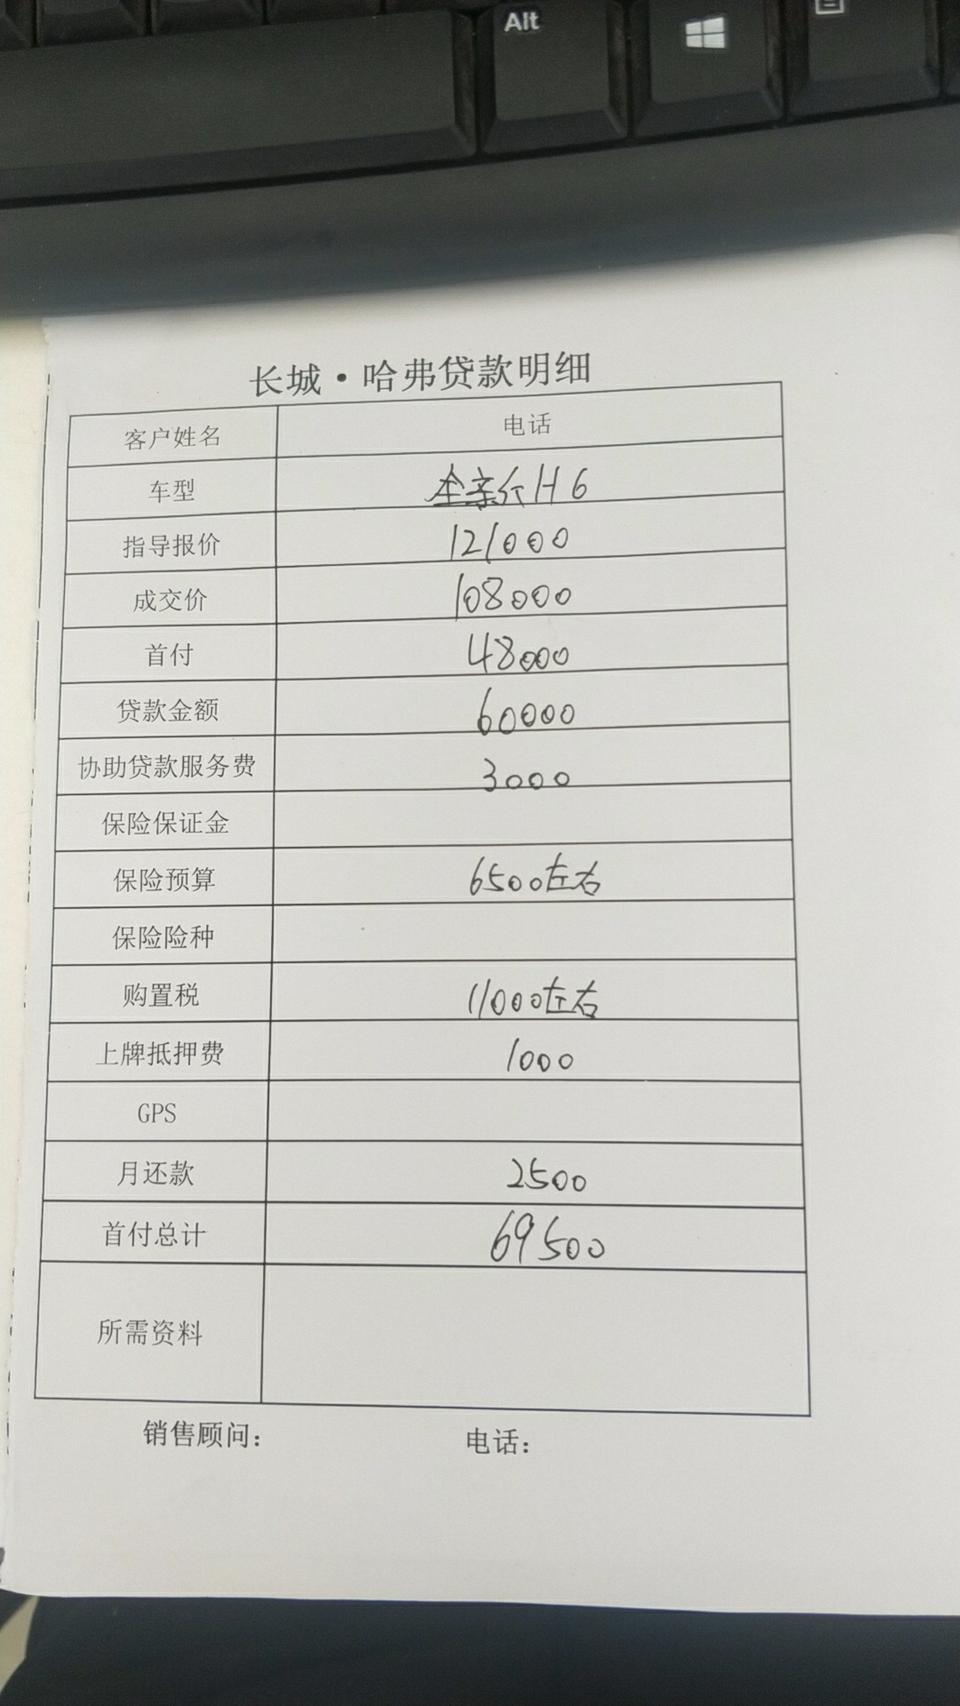 Alt
长城·哈弗贷款明细
客户姓名 电话
车型 全亲行H6
指导报价 121000
成交价 108000
首付 48000
贷款金额 60000
协助贷款服务费 3000
保险保证金
保险预算 6500左右
保险险种
购置税 11000左右
上牌抵押费 1000
GPS
月还款 2500
首付总计 69500
所需资料
销售顾问: 电话: